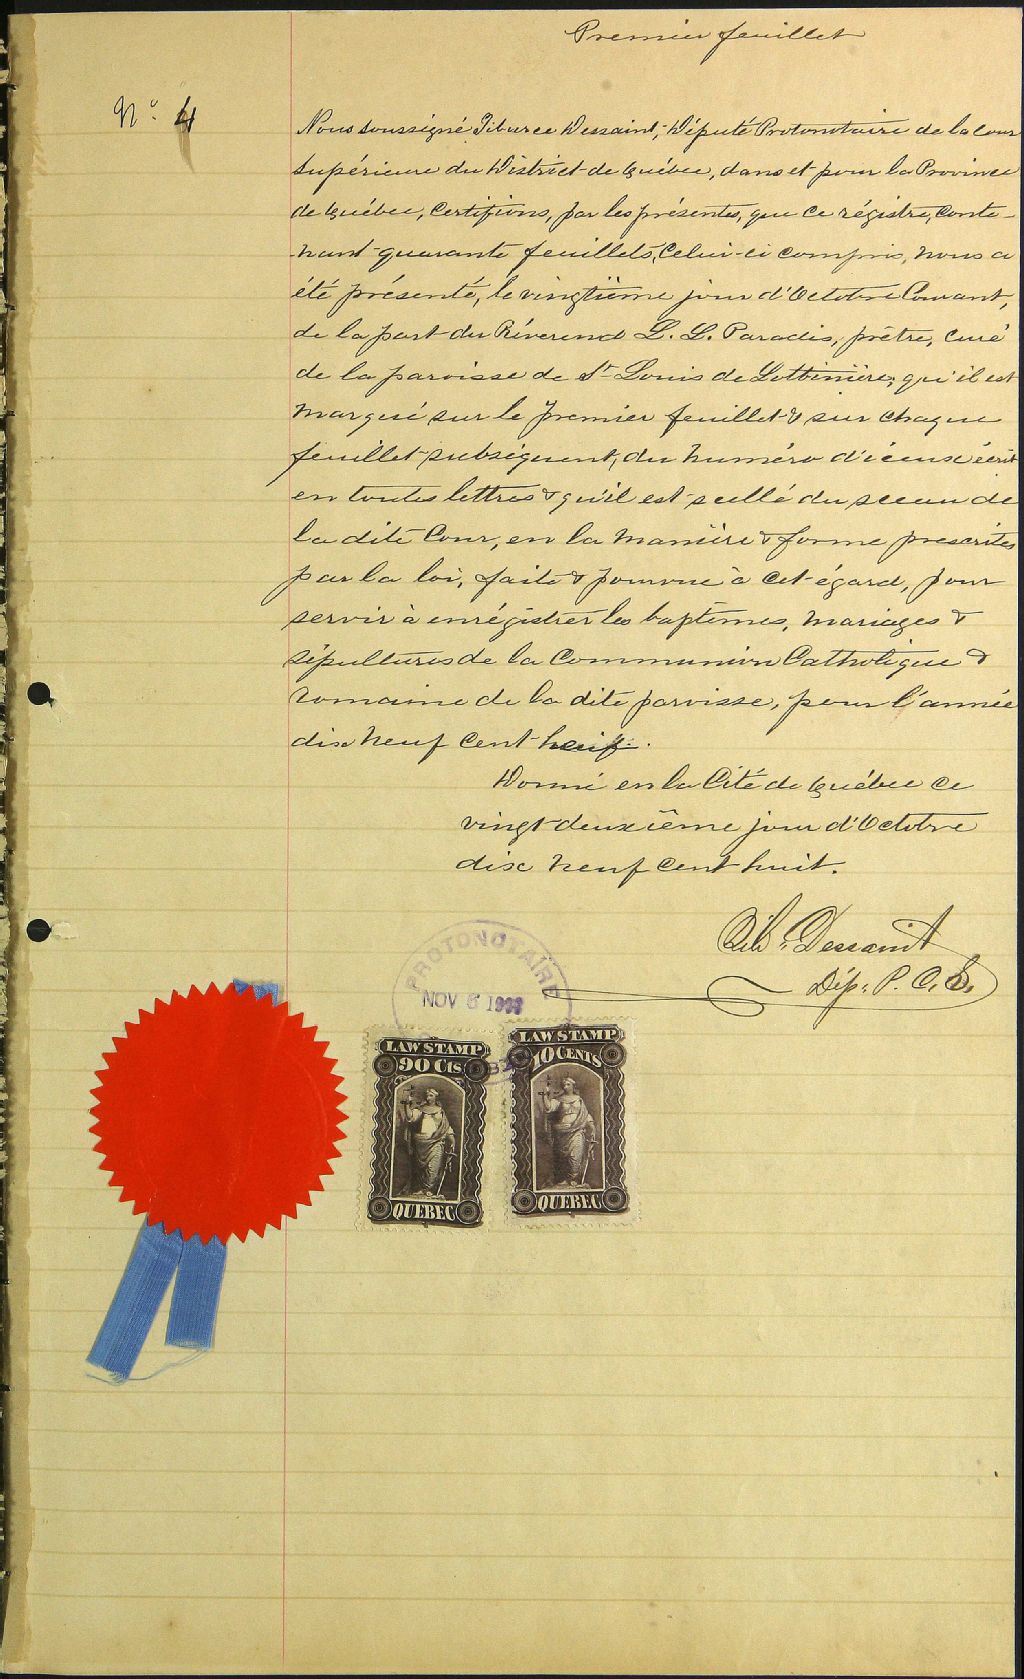 Premier feuillet
No. 4
Nous soussigné Tiburce Dessaint, Député Protonotaire de la Cour
Supérieure du District de Québec, dans et pour la Province
de Québec, Certifions, par les présentes, que ce régistre, conte-
nant quarante feuillets, Celui-ci compris, nous a
été présenté, le vingtième jour d'Octobre Courant,
de la part du Révérend L. L. Paradis, prêtre, curé
de la paroisse de St Louis de Lotbinière, qu'il est
marqué sur le premier feuillet & sur chaque
feuillet subséquent, du numéro d'iceux écrit
en toutes lettres & qu'il est scellé du sceau de
la dite Cour, en la manière & forme prescrites
par la loi, faite & pourvue à cet égard, pour
servir à enrégistrer les baptêmes, mariages &
sépultures de la Communion Catholique &
romaine de la dite paroisse, pour l'année
dix neuf cent neuf.
Donné en la Cité de Québec ce
vingt deuxième jour d'Octobre
dix neuf cent huit.
Tib. Dessaint
Dép. P. C. S.
PROTONOTAIRE
NOV 6
LAW STAMP
90 Cts
QUEBEC
LAW STAMP
10 CENTS
QUEBEC